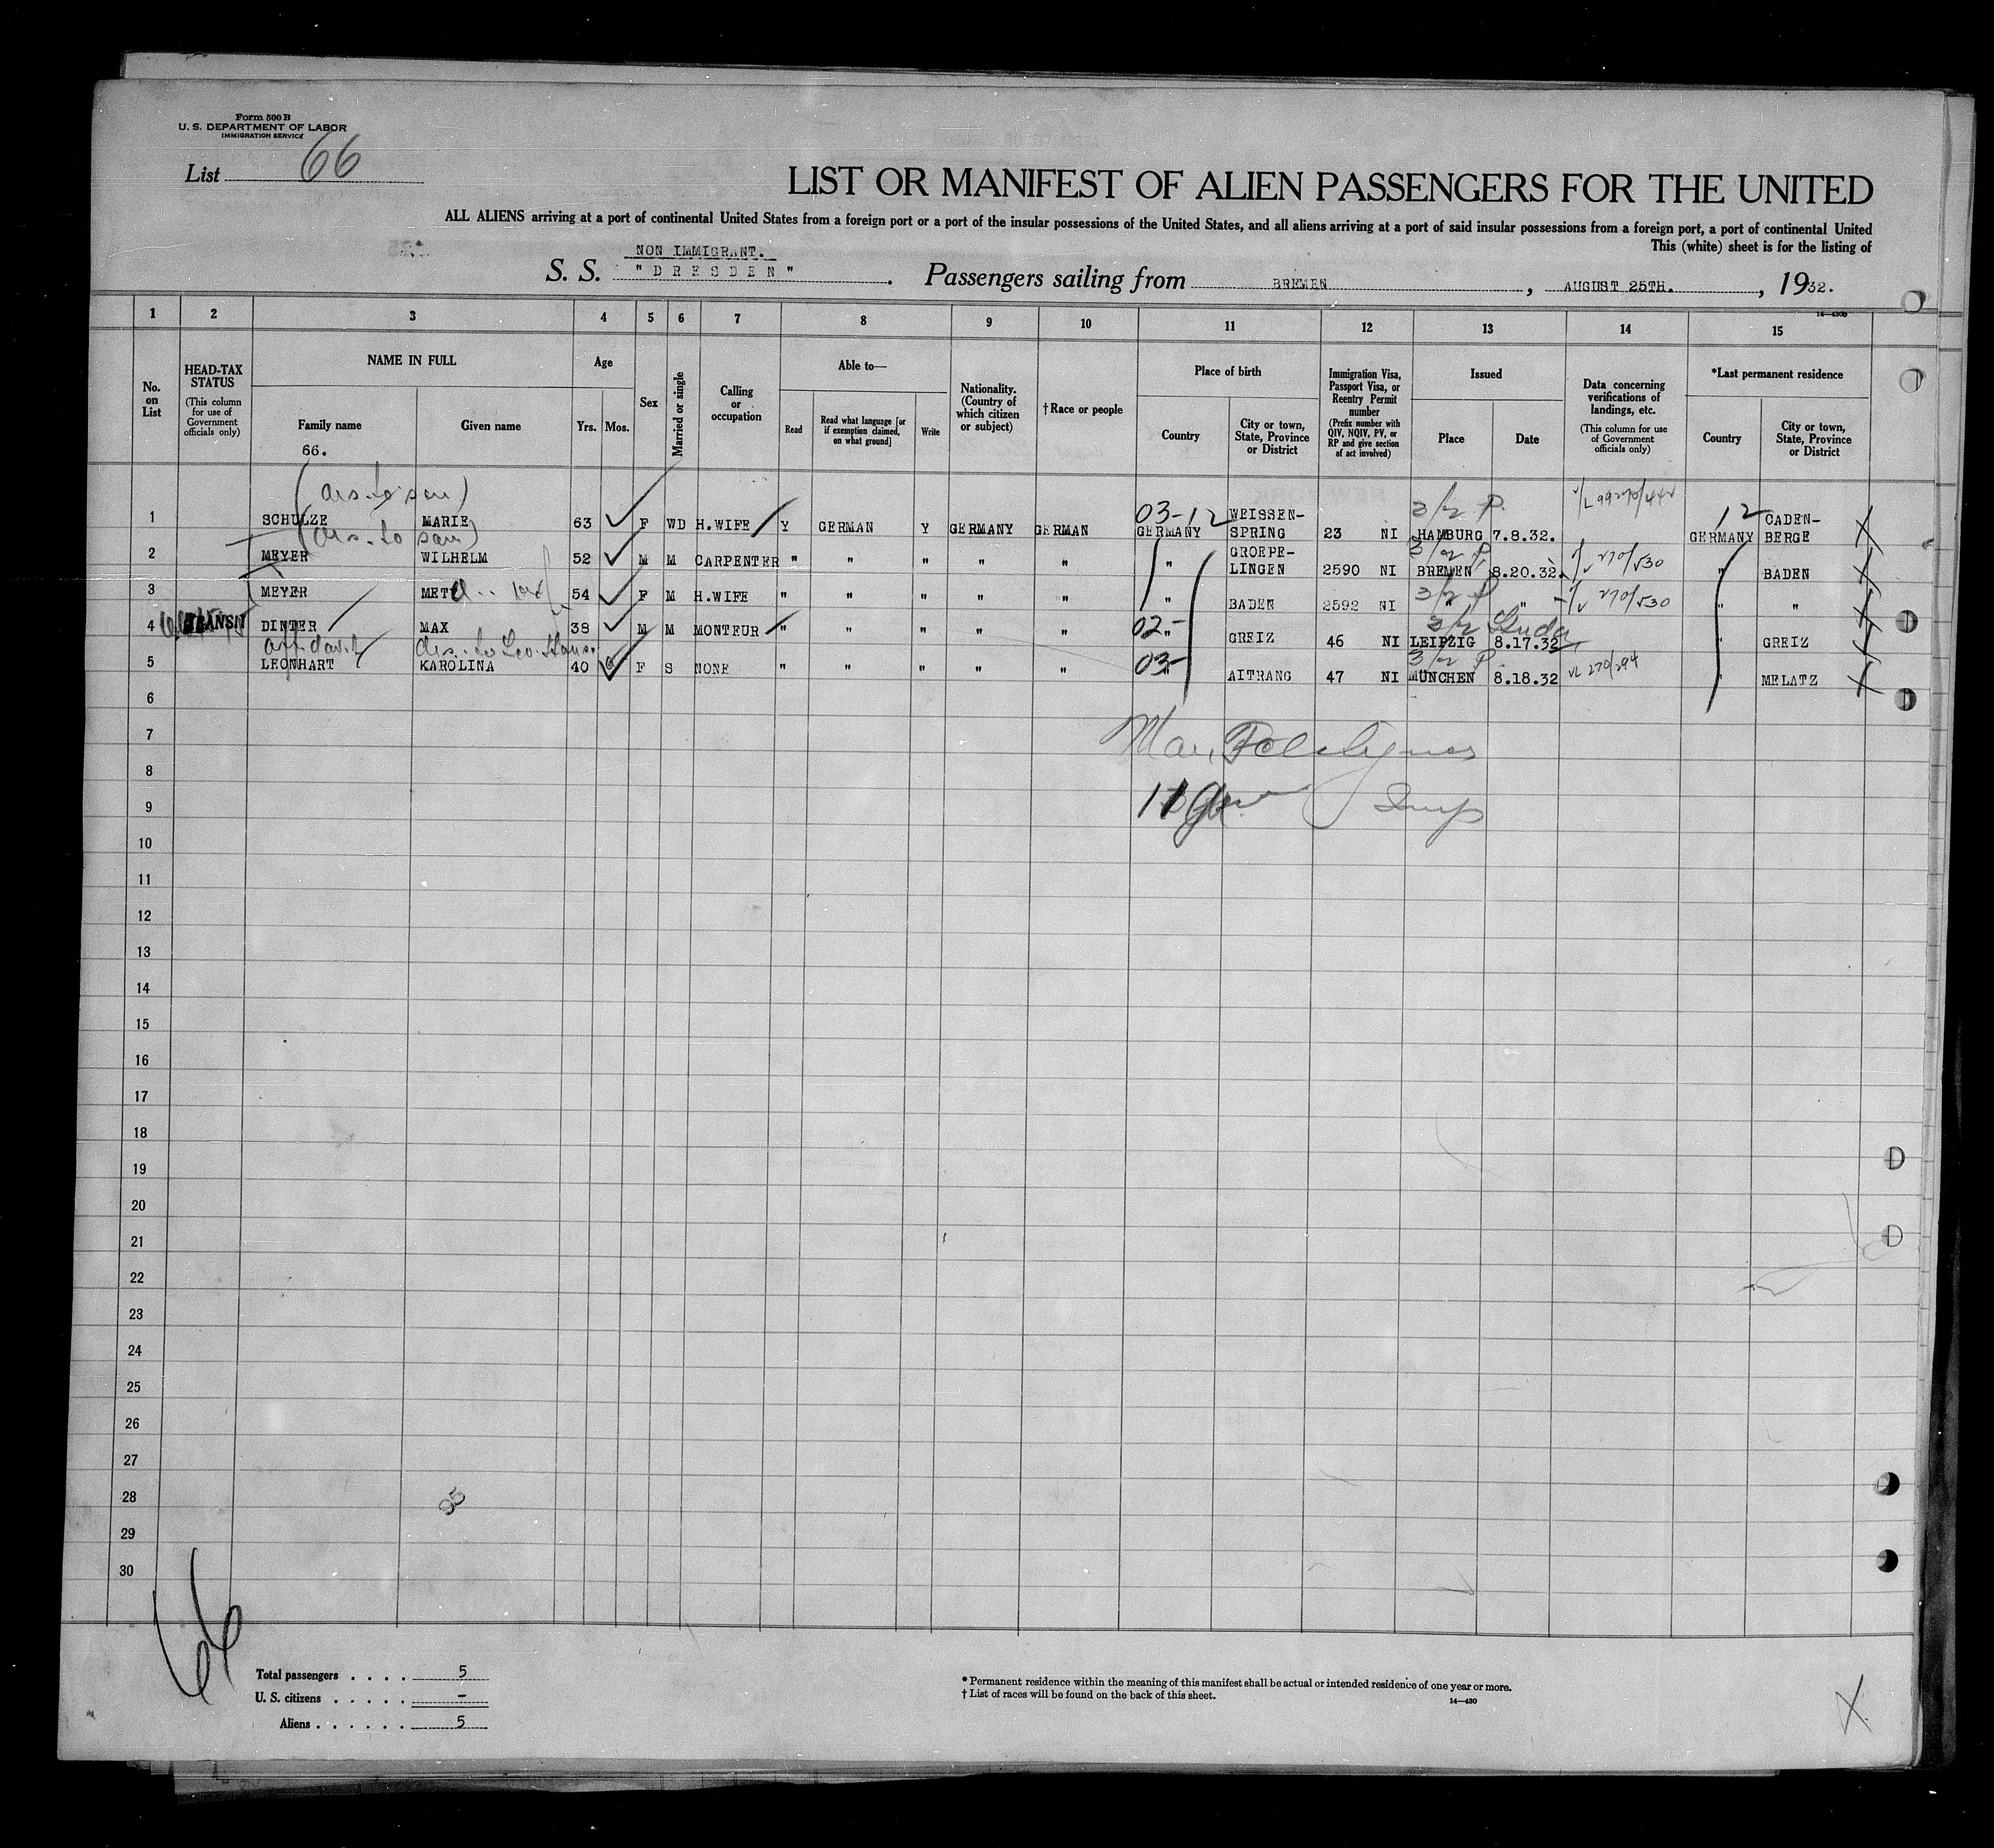 Form 500 B
U. S. DEPARTMENT OF LABOR
IMMIGRATION SERVICE
List 66
LIST OR MANIFEST OF ALIEN PASSENGERS FOR THE UNITED
ALL ALIENS arriving at a port of continental United States from a foreign port or a port of the insular possessions of the United States, and all aliens arriving at a port of said insular possessions from a foreign port, a port of continental United
This (white) sheet is for the listing of
NON IMMIGRANT.
S. S. "DRESDEN". Passengers sailing from BREMEN, AUGUST 25TH., 1932.
14—430B
1 2 3 4 5 6 7 8 9 10 11 12 13 14 15
No. on List
HEAD-TAX STATUS (This column for use of Government officials only)
NAME IN FULL
Family name
Given name
66.
Age
Yrs. Mos.
Sex
Married or single
Calling or occupation
Able to—
Read
Read what language [or if exemption claimed, on what ground]
Write
Nationality. (Country of which citizen or subject)
†Race or people
Place of birth
Country
City or town, State, Province or District
Immigration Visa, Passport Visa, or Reentry Permit number (Prefix number with QIV, NQIV, PV, or RP and give section of act involved)
Issued
Place
Date
Data concerning verifications of landings, etc. (This column for use of Government officials only)
*Last permanent residence
Country
City or town, State, Province or District
1 SCHULZE MARIE 63 F WD H.WIFE Y GERMAN Y GERMANY GERMAN 03-12 GERMANY WEISSEN-SPRING 23 NI 3/2 P. HAMBURG 7.8.32. 12 GERMANY CADEN-BERGE
2 MEYER WILHELM 52 M M CARPENTER " " " " " " GROEPE-LINGEN 2590 NI 3/2 P. BREMEN 8.20.32. 270/530 " BADEN
3 MEYER 54 F M H.WIFE " " " " " " BADEN 2592 NI 3/2 P " " 270/530 " "
4 TRANSIT DINTER MAX 38 M M MONTEUR " " " " " 02- " GREIZ 46 NI 3/2 LEIPZIG 8.17.32 " GREIZ
5 LEONHART KAROLINA 40 F S NONE " " " " " 03- " AITRANG 47 NI 3/2 P. MÜNCHEN 8.18.32 270/294 " MELATZ
6
7
8
9
10
11
12
13
14
15
16
17
18
19
20
21
22
23
24
25
26
27
28
29
30
66
Total passengers . . . . 5
U. S. citizens . . . . . –
Aliens . . . . . . 5
* Permanent residence within the meaning of this manifest shall be actual or intended residence of one year or more.
† List of races will be found on the back of this sheet.
14—430